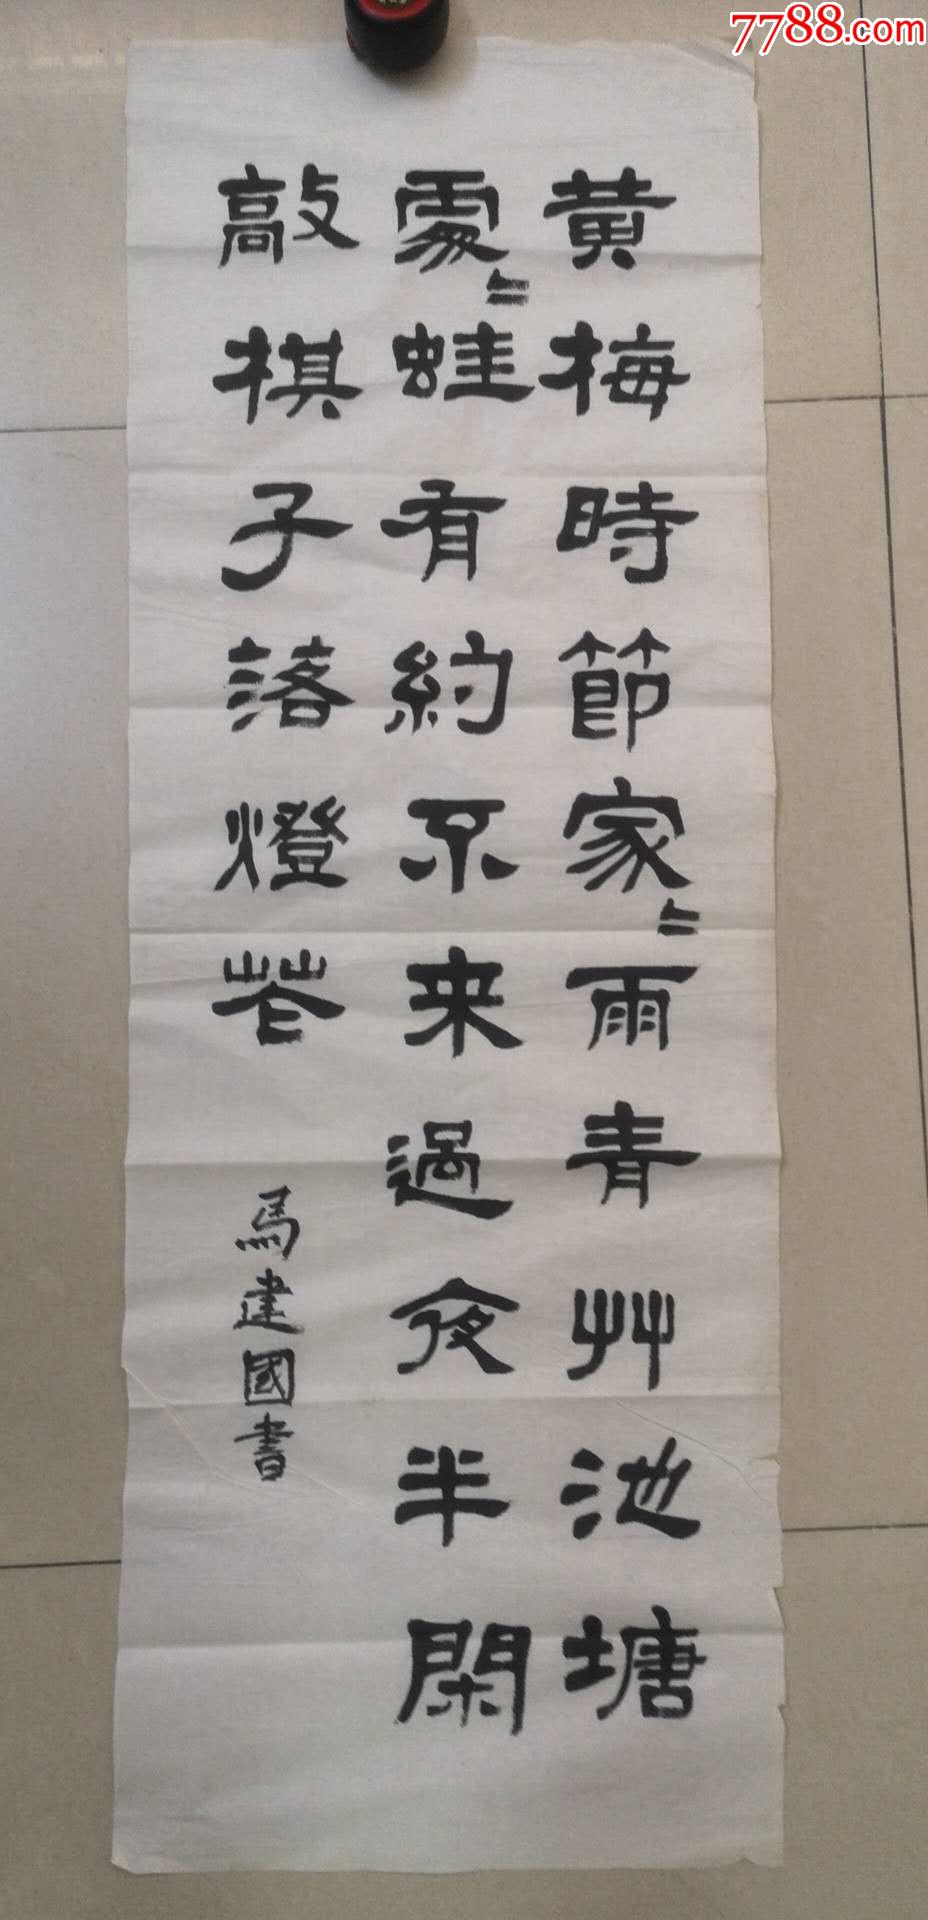 黄梅時節家〻雨青艸池塘
處〻蛙有約不来過夜半閑
敲棋子落燈花
馬建國書
7788.com